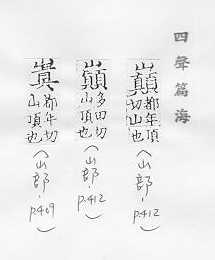 四聲篇海
巔都年頂切山也(山部-p.412)
巓多田切山頂也(山部-p.412)
都年切山頂也(山部-p.409)